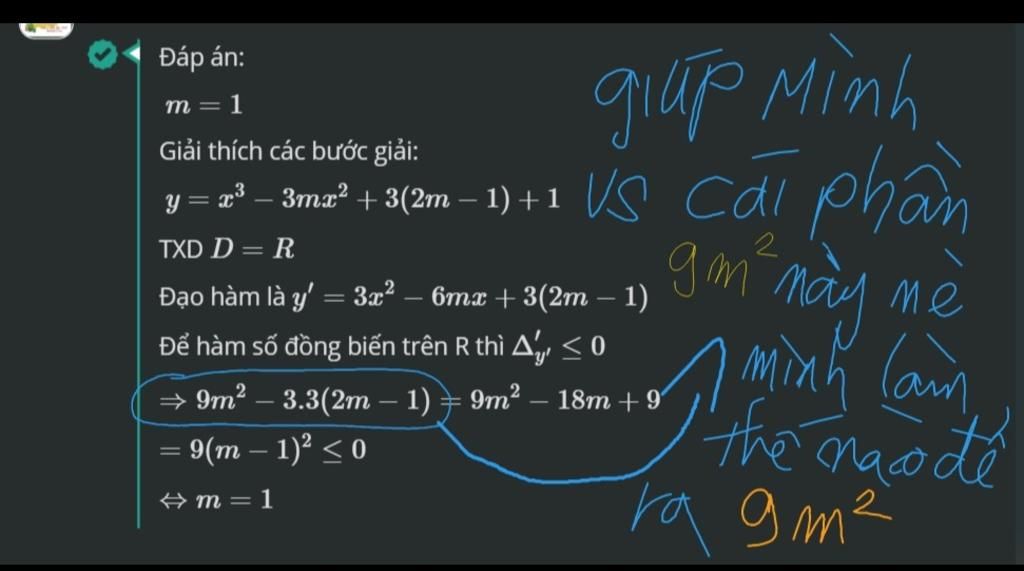 Đáp án:
m = 1
Giải thích các bước giải:
y = x³ − 3mx² + 3(2m − 1) + 1
TXD D = R
Đạo hàm là y′ = 3x² − 6mx + 3(2m − 1)
Để hàm số đồng biến trên R thì Δ′y′ ≤ 0
⇒ 9m² − 3.3(2m − 1) = 9m² − 18m + 9
= 9(m − 1)² ≤ 0
⇔ m = 1
giúp Mình
vs cái phần
9m² này nè
mình làm
thế nào để
ra 9m²